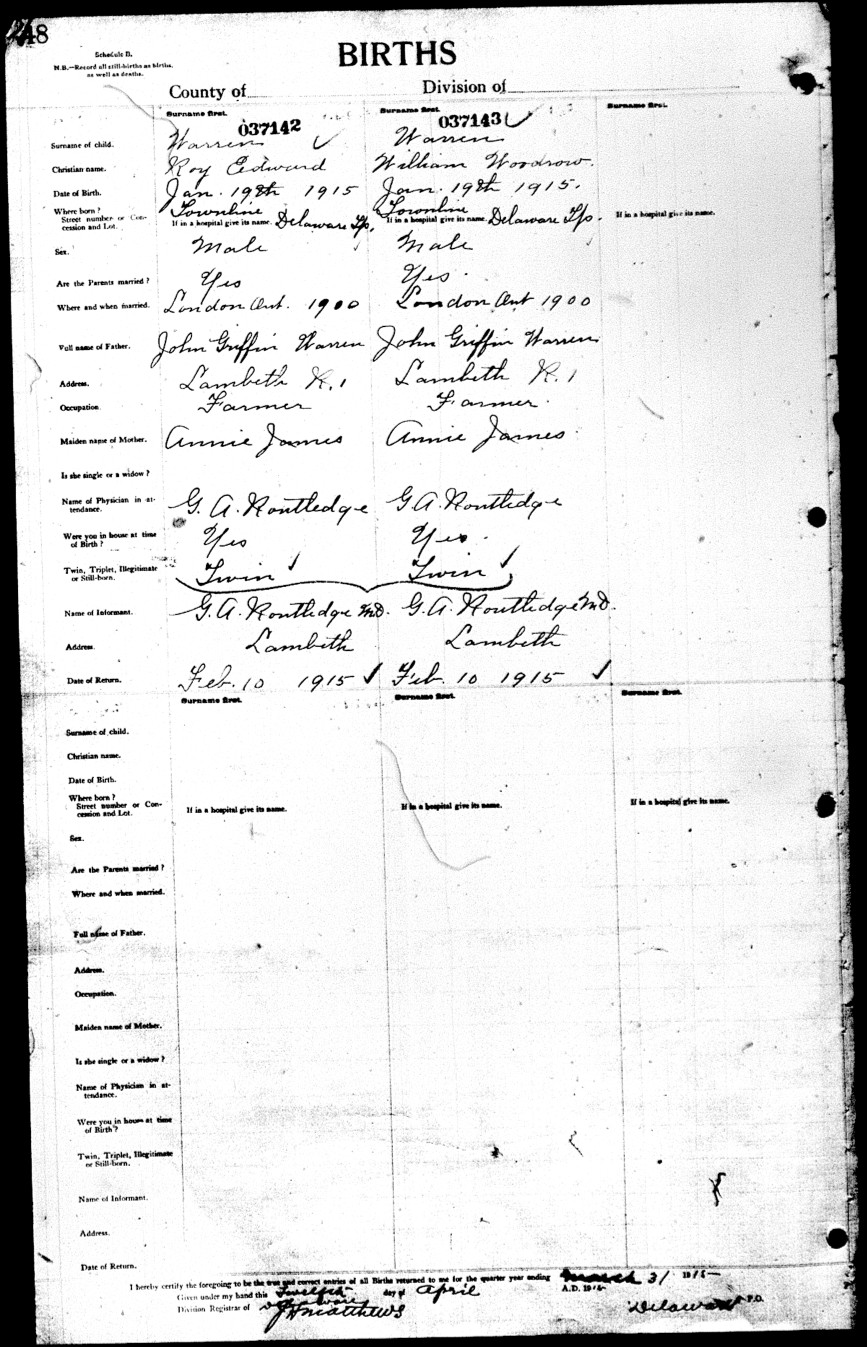 48
Schedule D.
N.B.—Record all still-births as births,
as well as deaths.
BIRTHS
County of
Division of
Surname first.
Surname first.
Surname first.
037142
037143
Surname of child.
Warren
Warren
Christian name.
Roy Edward
William Woodrow.
Date of Birth.
Jan. 19th 1915
Jan. 19th 1915.
Where born?
Street number or Con-
cession and Lot.
Townline
Townline
If in a hospital give its name.
Delaware Tp.
If in a hospital give its name.
Delaware Tp.
If in a hospital give its name.
Sex.
Male
Male
Are the Parents married?
Yes
Yes.
Where and when married.
London Ont. 1900
London Ont 1900
Full name of Father.
John Griffin Warren
John Griffin Warren
Address.
Lambeth R. 1
Lambeth R. 1
Occupation.
Farmer
Farmer.
Maiden name of Mother.
Annie James
Annie James
Is she single or a widow?
Name of Physician in at-
tendance.
G. A. Routledge
G. A. Routledge
Were you in house at time
of Birth?
Yes
Yes.
Twin, Triplet, Illegitimate
or Still-born.
Twin
Twin
Name of Informant.
G. A. Routledge M.D.
G. A. Routledge M.D.
Address.
Lambeth
Lambeth
Date of Return.
Feb. 10 1915
Feb. 10 1915
Surname first.
Surname first.
Surname first.
Surname of child.
Christian name.
Date of Birth.
Where born?
Street number or Con-
cession and Lot.
If in a hospital give its name.
If in a hospital give its name.
If in a hospital give its name.
Sex.
Are the Parents married?
Where and when married.
Full name of Father.
Address.
Occupation.
Maiden name of Mother.
Is she single or a widow?
Name of Physician in at-
tendance.
Were you in house at time
of Birth?
Twin, Triplet, Illegitimate
or Still-born.
Name of Informant.
Address.
Date of Return.
I hereby certify the foregoing to be the true and correct entries of all Births returned to me for the quarter year ending March 31 1915
Given under my hand this Twelfth day of April A.D. 1915
Division Registrar of Delaware
J H Matthews
Delaware P.O.